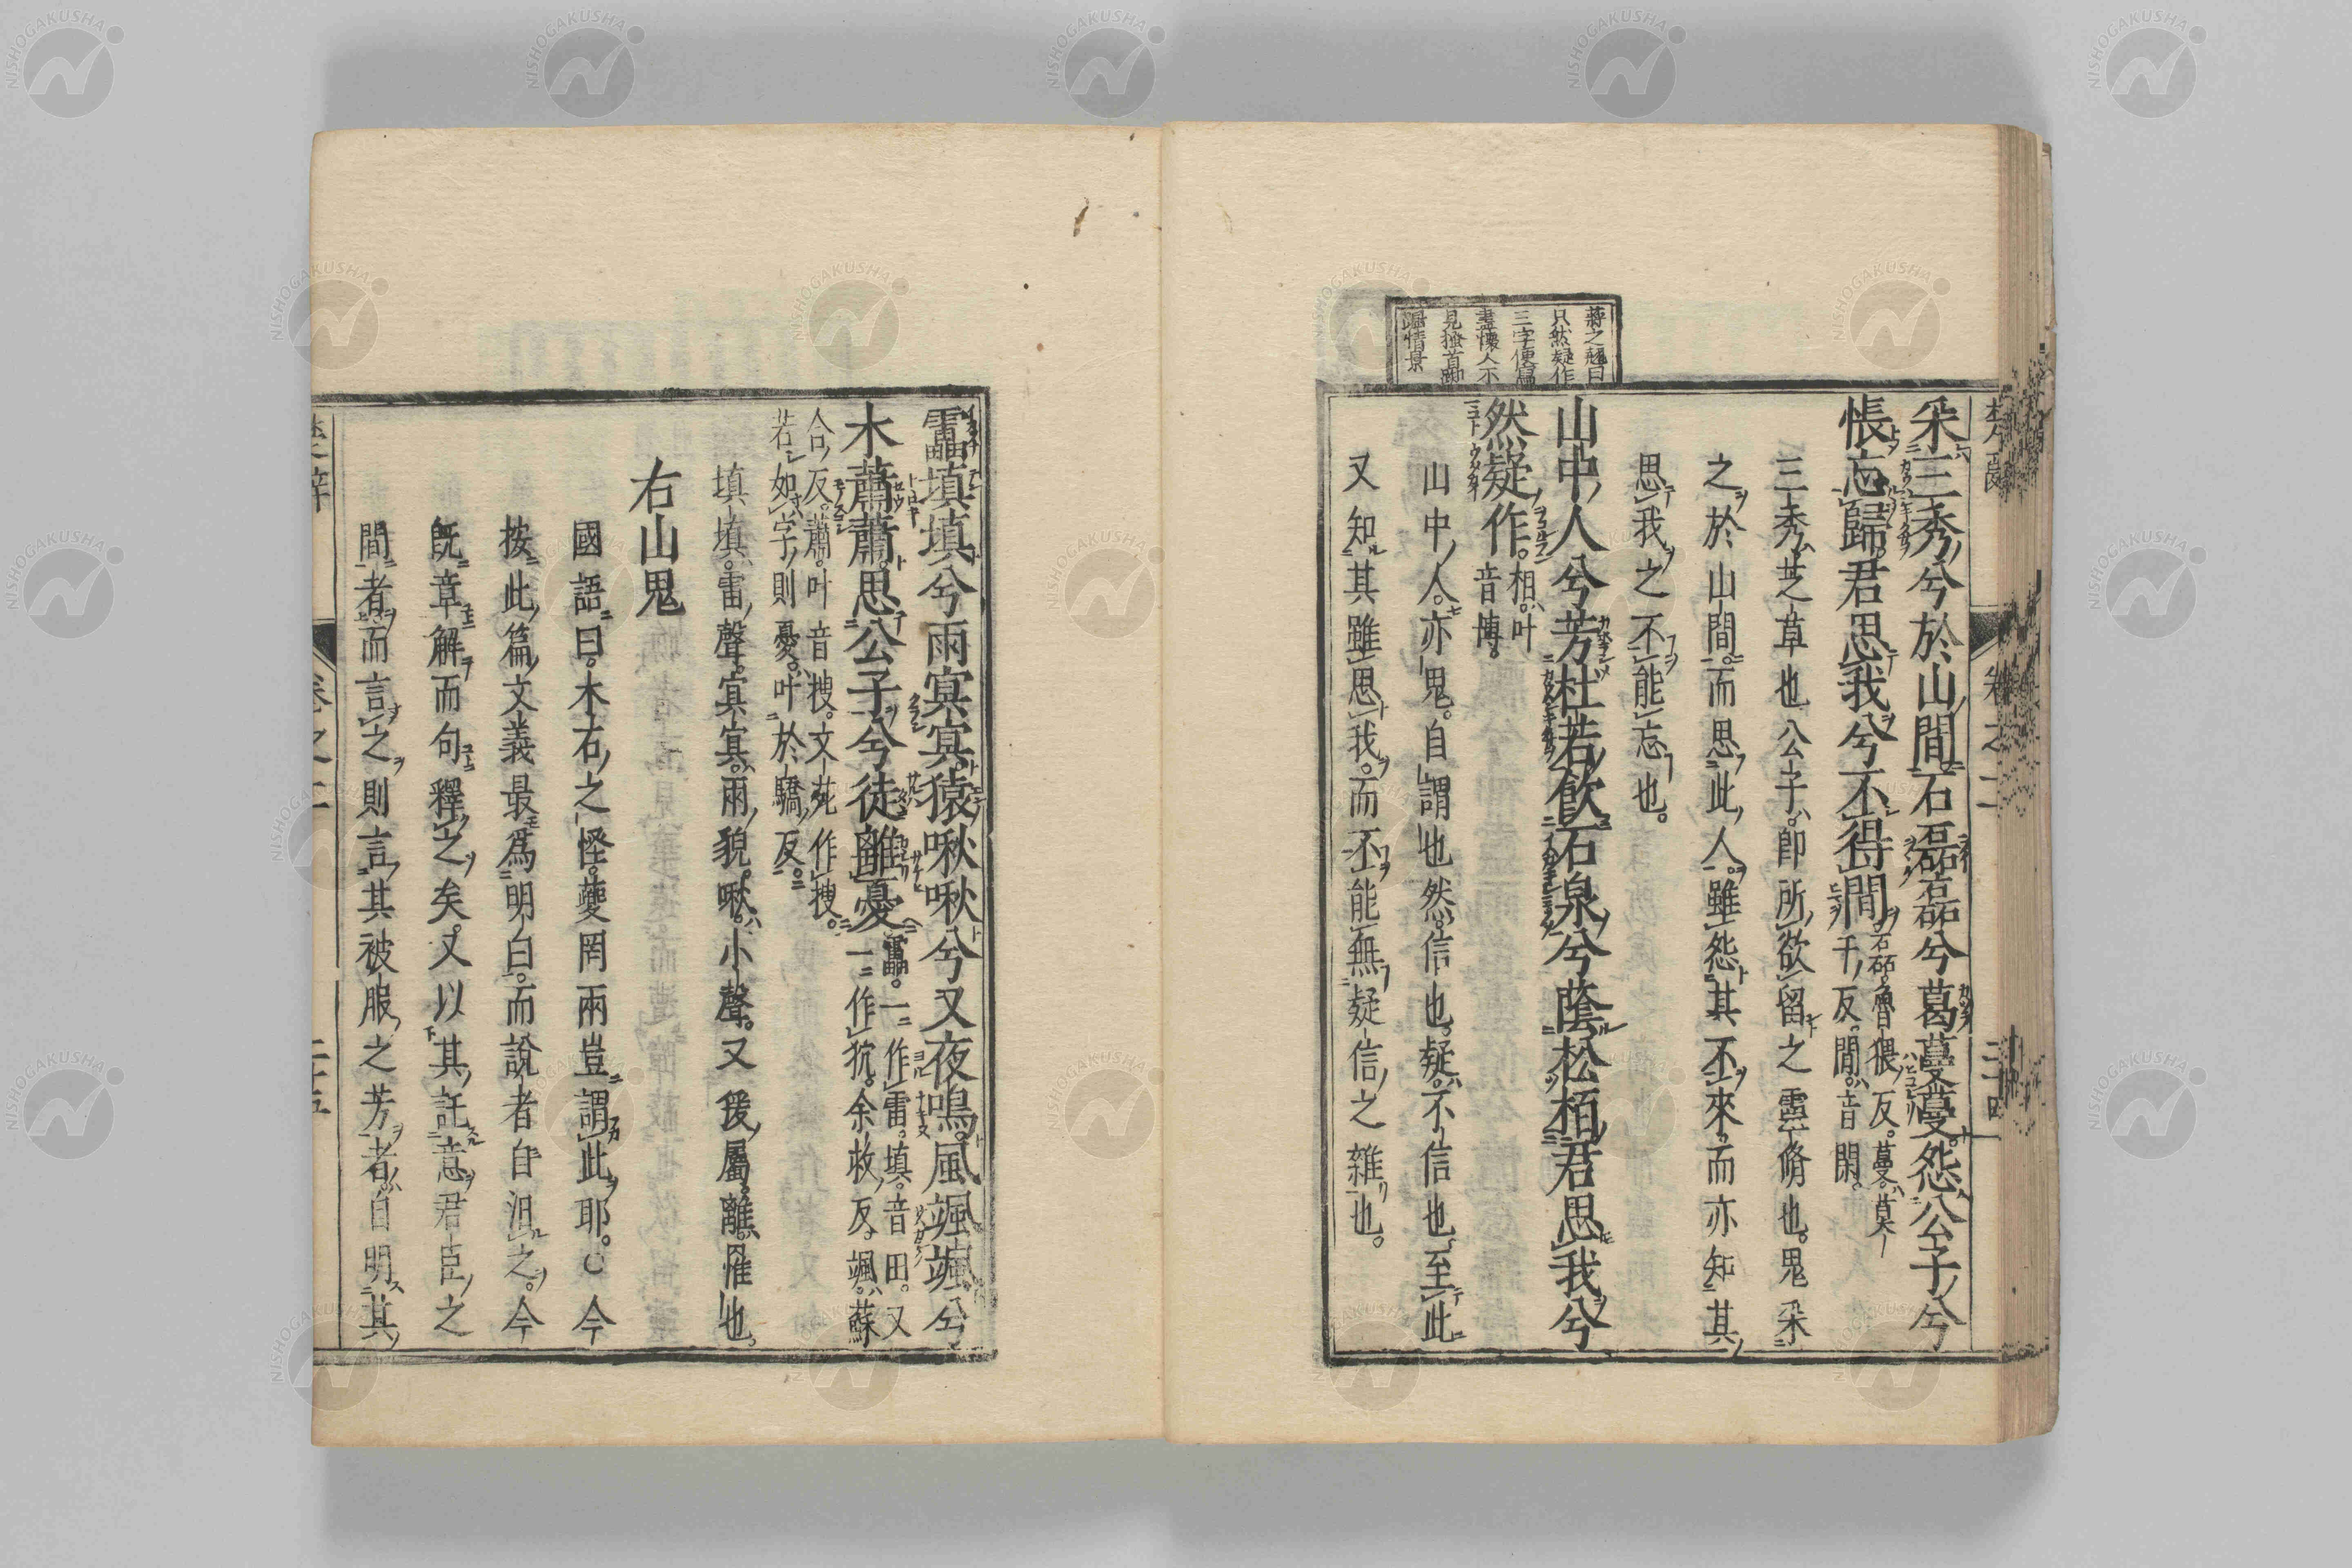 蔣之翹曰
只然疑作
三字便爲
盡懷人不
見搔首踟
蹰情景
采三秀兮於山間石磊磊兮葛蔓蔓怨公子兮
悵忘歸君思我兮不得間石磊魯猥反蔓莫
干反間音閑
三秀芝草也公子卽所欲留之靈脩也鬼采
之於山間而思此人雖怨其不來而亦知其
思我之不能忘也
山中人兮芳杜若飲石泉兮蔭松栢君思我兮
然疑作相叶
音博
山中人亦鬼自謂也然信也疑不信也至此
又知其雖思我而不能無疑信之雜也
楚辭 卷之二 二十四
靁塡塡兮雨冥冥猨啾啾兮又夜鳴風颯颯兮
木蕭蕭思公子兮徒離憂靁一作雷塡音田又
一作狖余救反颯蘇
合反蕭叶音搜文苑作搜
若如字則憂叶於驕反
塡塡雷聲冥冥雨貌啾小聲又猨屬離罹也
右山鬼
國語曰木石之怪夔罔兩豈謂此耶○今
按此篇文義最爲明白而說者自汩之今
旣章解而句釋之矣又以其託意君臣之
間者而言之則言其被服之芳者自明其
楚辭 卷之二 二十五
NISHOGAKUSHA